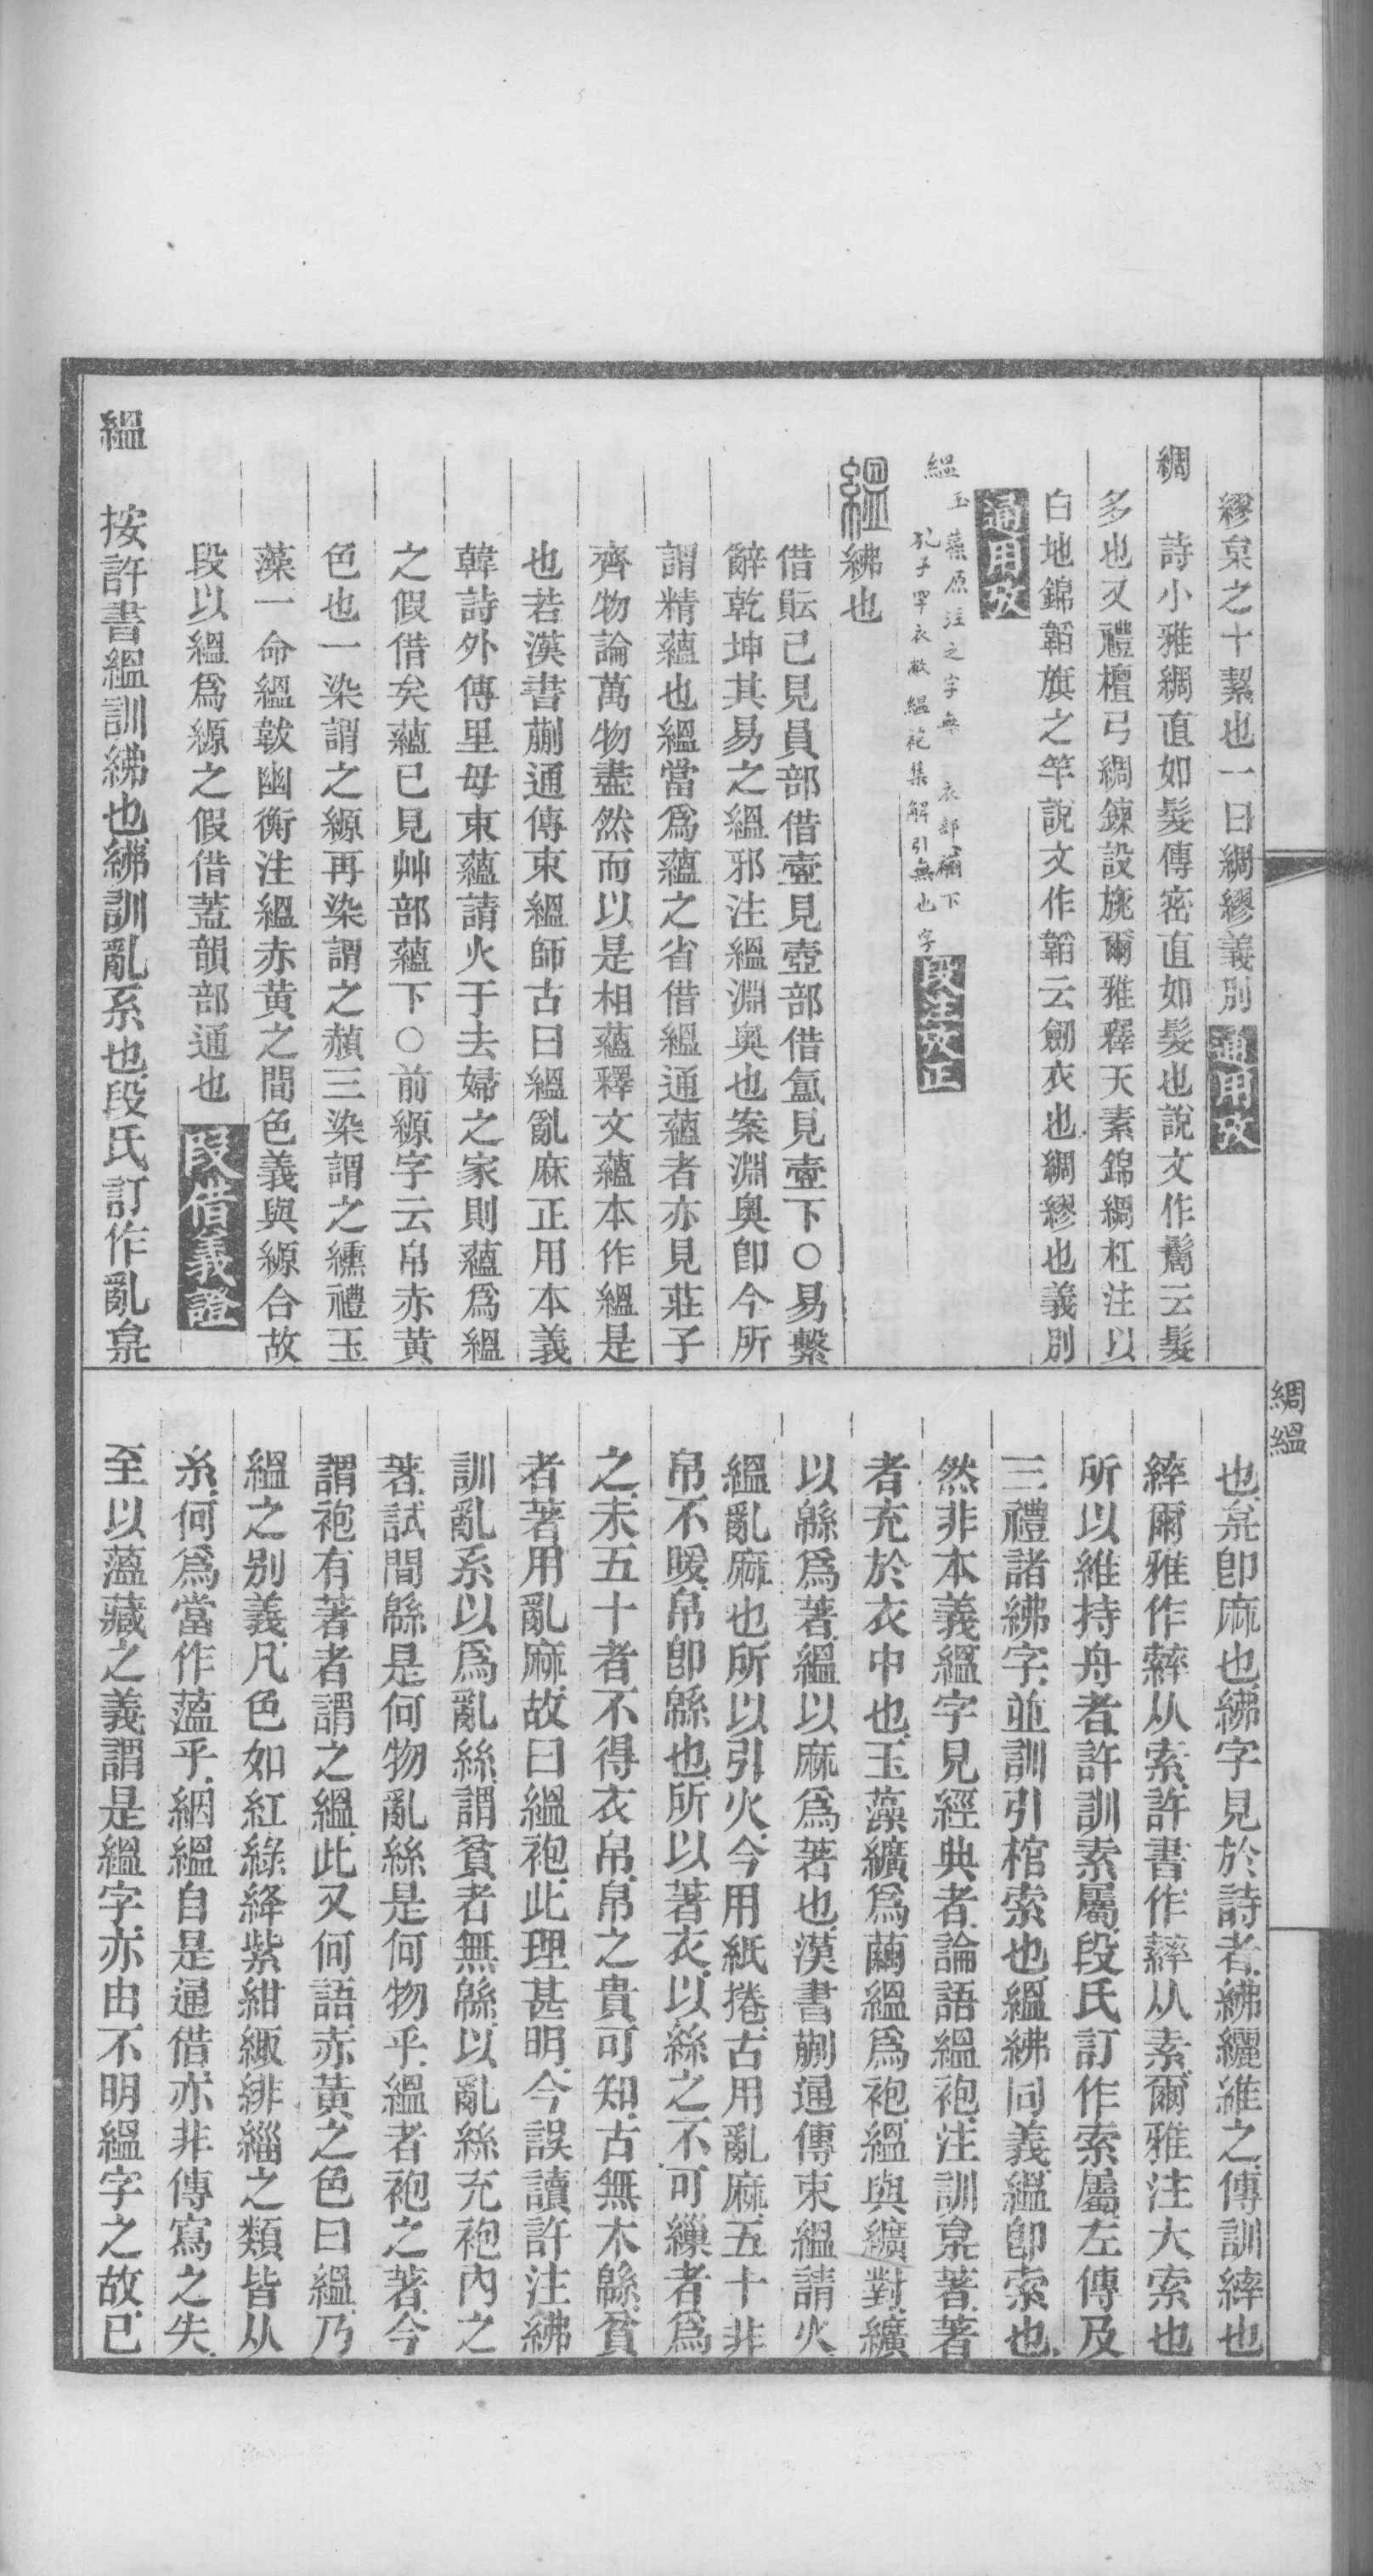 繆枲之十絜也一曰綢繆義別 通用攷
綢　詩小雅綢直如髮傳密直如髮也說文作鬜云髮
多也又禮檀弓綢練設旐爾雅釋天素錦綢杠注以
白地錦韜旗之竿說文作韜云劒衣也綢繆也義別
通用攷
縕 玉藻原注之字無　衣部襺下
孔子罕衣敝縕袍集解引無也字 段注攷正
縕 紼也
借䡝已見員部借壼見壺部借氳見壹下○易繫
辭乾坤其易之縕邪注縕淵奧也案淵奧卽今所
謂精蘊也縕當爲蘊之省借縕通蘊者亦見莊子
齊物論萬物盡然而以是相蘊釋文蘊本作縕是
也若漢書蒯通傳束縕師古曰縕亂麻正用本義
韓詩外傳里母束蘊請火于去婦之家則蘊爲縕
之假借矣蘊已見艸部蘊下○前縓字云帛赤黃
色也一染謂之縓再染謂之赬三染謂之纁禮玉
藻一命縕韍幽衡注縕赤黃之間色義與縓合故
段以縕爲縓之假借蓋韻部通也 段借義證
縕　按許書縕訓紼也紼訓亂系也段氏訂作亂枲
綢縕
也枲卽麻也紼字見於詩者紼纚維之傳訓繂也
繂爾雅作䋖从索許書作䋖从素爾雅注大索也
所以維持舟者許訓素屬段氏訂作索屬左傳及
三禮諸紼字並訓引棺索也縕紼同義縕卽索也
然非本義縕字見經典者論語縕袍注訓枲著著
者充於衣中也玉藻纊爲繭縕爲袍縕與纊對纊
以緜爲著縕以麻爲著也漢書蒯通傳束縕請火
縕亂麻也所以引火今用紙捲古用亂麻五十非
帛不暖帛卽緜也所以著衣以絲之不可繅者爲
之未五十者不得衣帛帛之貴可知古無木緜貧
者著用亂麻故曰縕袍此理甚明今誤讀許注紼
訓亂系以爲亂絲謂貧者無緜以亂絲充袍內之
著試問緜是何物亂絲是何物乎縕者袍之著今
謂袍有著者謂之縕此又何語赤黃之色曰縕乃
縕之別義凡色如紅綠絳紫紺緅緋緇之類皆从
糸何爲當作薀乎絪縕自是通借亦非傳寫之失
至以薀藏之義謂是縕字亦由不明縕字之故已